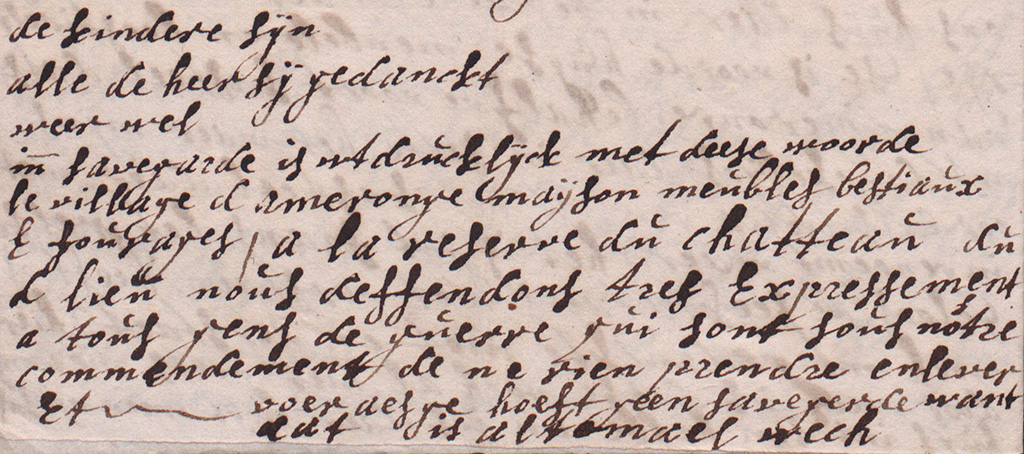 de kindere sijn
alle de heer sij gedanckt
weer wel
in savegarde is utdrucklijck met deese woorde
le village d ameronge mayson meubles bestiaux
& fourages / a la reserve du chatteau du
d lieu nous deffendons tres Expressement
a tous gens de guerre qui sont sous nôtre
commendement de ne rien prendre enlever
Et voer aesge hoeft geen savegerde want
dat is altemael wech